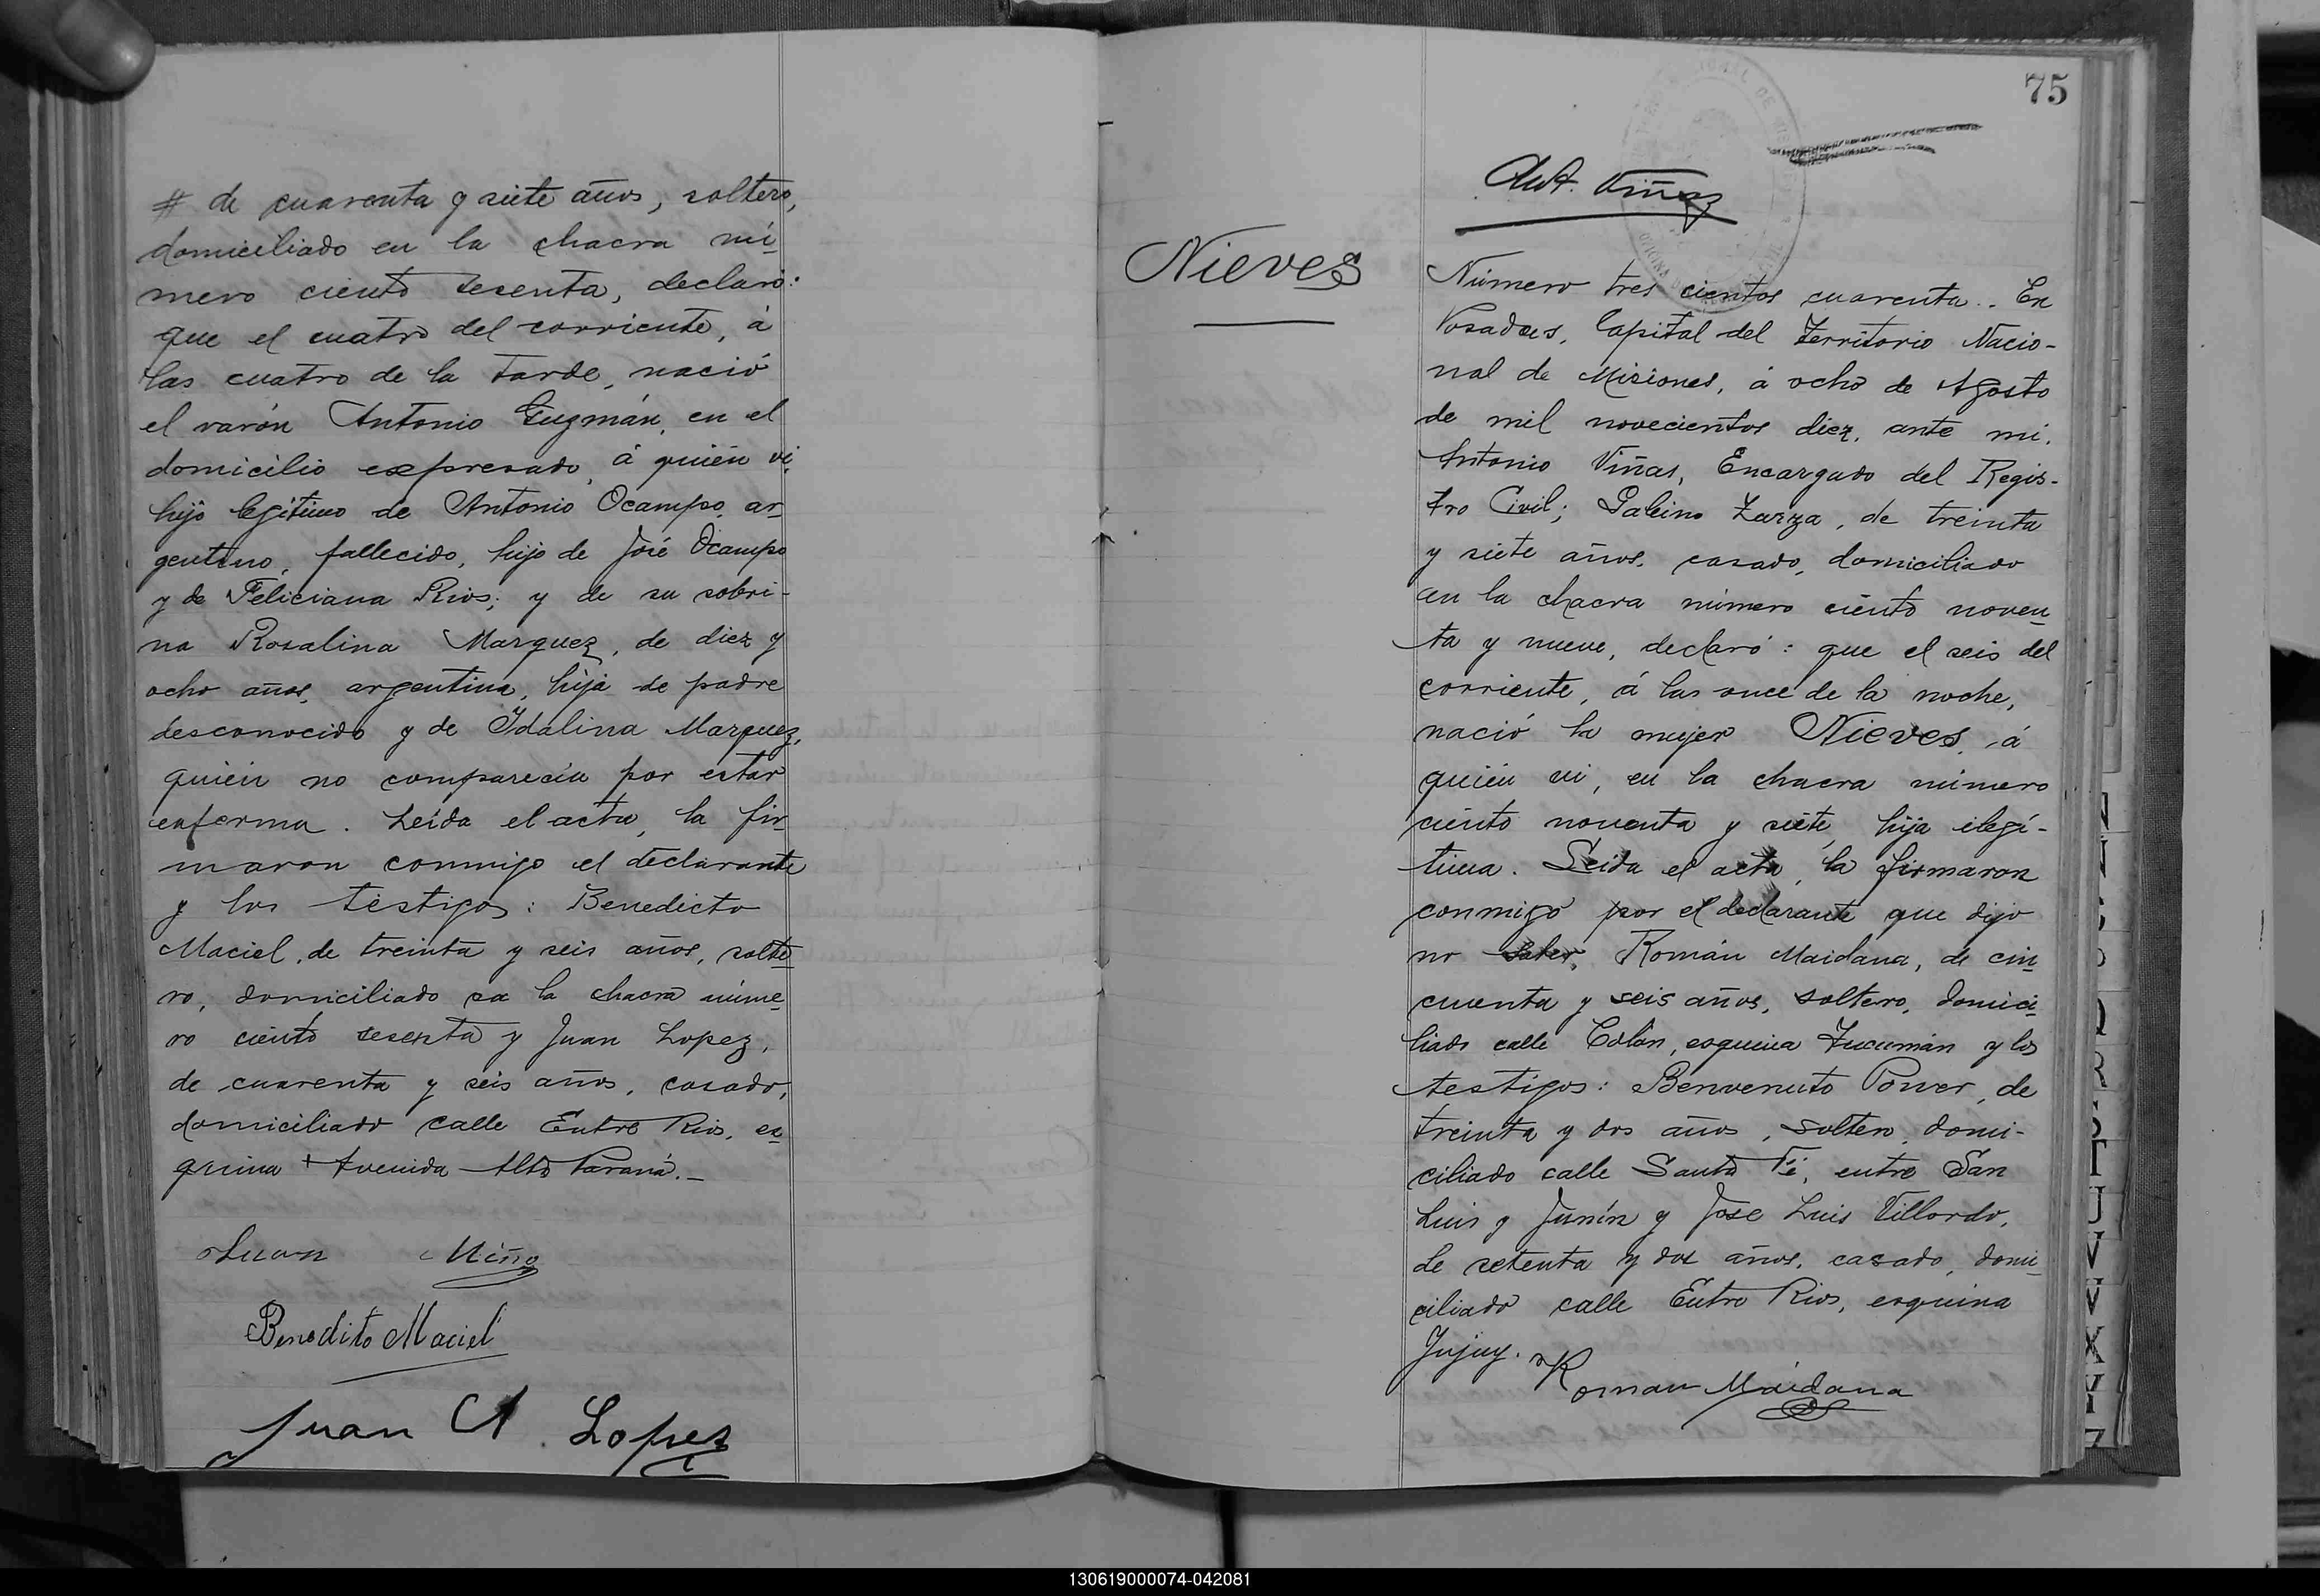 # de cuarenta y siete años, soltero,
domiciliado en la chacra nú-
mero ciento sesenta, declaró:
que el cuatro del corriente, á
las cuatro de la tarde, nació
el varón Antonio Guzmán, en el
domicilio expresado, á quién vi,
hijo legítimo de Antonio Ocampo, ar-
gentino, fallecido, hijo de José Ocampo
y de Feliciana Rios; y de su sobri-
na Rosalina Marquez, de diez y
ocho años, argentina, hija de padre
desconocido y de Idalina Marquez,
quién no comparecía por estar
enferma. Leída el acta, la fir-
maron conmigo el declarante
y los testigos: Benedicto
Maciel, de treinta y seis años, solte-
ro, domiciliado en la chacra núme-
ro ciento sesenta y Juan Lopez,
de cuarenta y seis años, casado,
domiciliado calle Entre Rios, es-
quina Avenida Alto Paraná.-
Juan Miño
Benedito Maciel
Juan A. Lopez
75
Ant. Viñas
Nieves
Número tres cientos cuarenta.. En
Posadas, Capital del Territorio Nacio-
nal de Misiones, á ocho de Agosto
de mil novecientos diez, ante mi,
Antonio Viñas, Encargado del Regis-
tro Civil; Gabino Zarza, de treinta
y siete años, casado, domiciliado
en la chacra número ciento noven-
ta y nueve, declaró: que el seis del
corriente, á las once de la noche,
nació la mujer Nieves, á
quién vi, en la chacra número
ciento noventa y siete, hija ilegí-
tima. Leída el acta, la firmaron
conmigo por el declarante que dijo
no saber, Román Maidana, de cin-
cuenta y seis años, soltero, domici-
liado calle Colón, esquina Tucumán y los
testigos: Benvenuto Power, de
treinta y dos años, soltero, domi-
ciliado calle Santa Fé, entre San
Luis y Junín y Jose Luis Villordo,
de setenta y dos años, casado, domi-
ciliado calle Entre Rios, esquina
Jujuy.
Roman Maidana